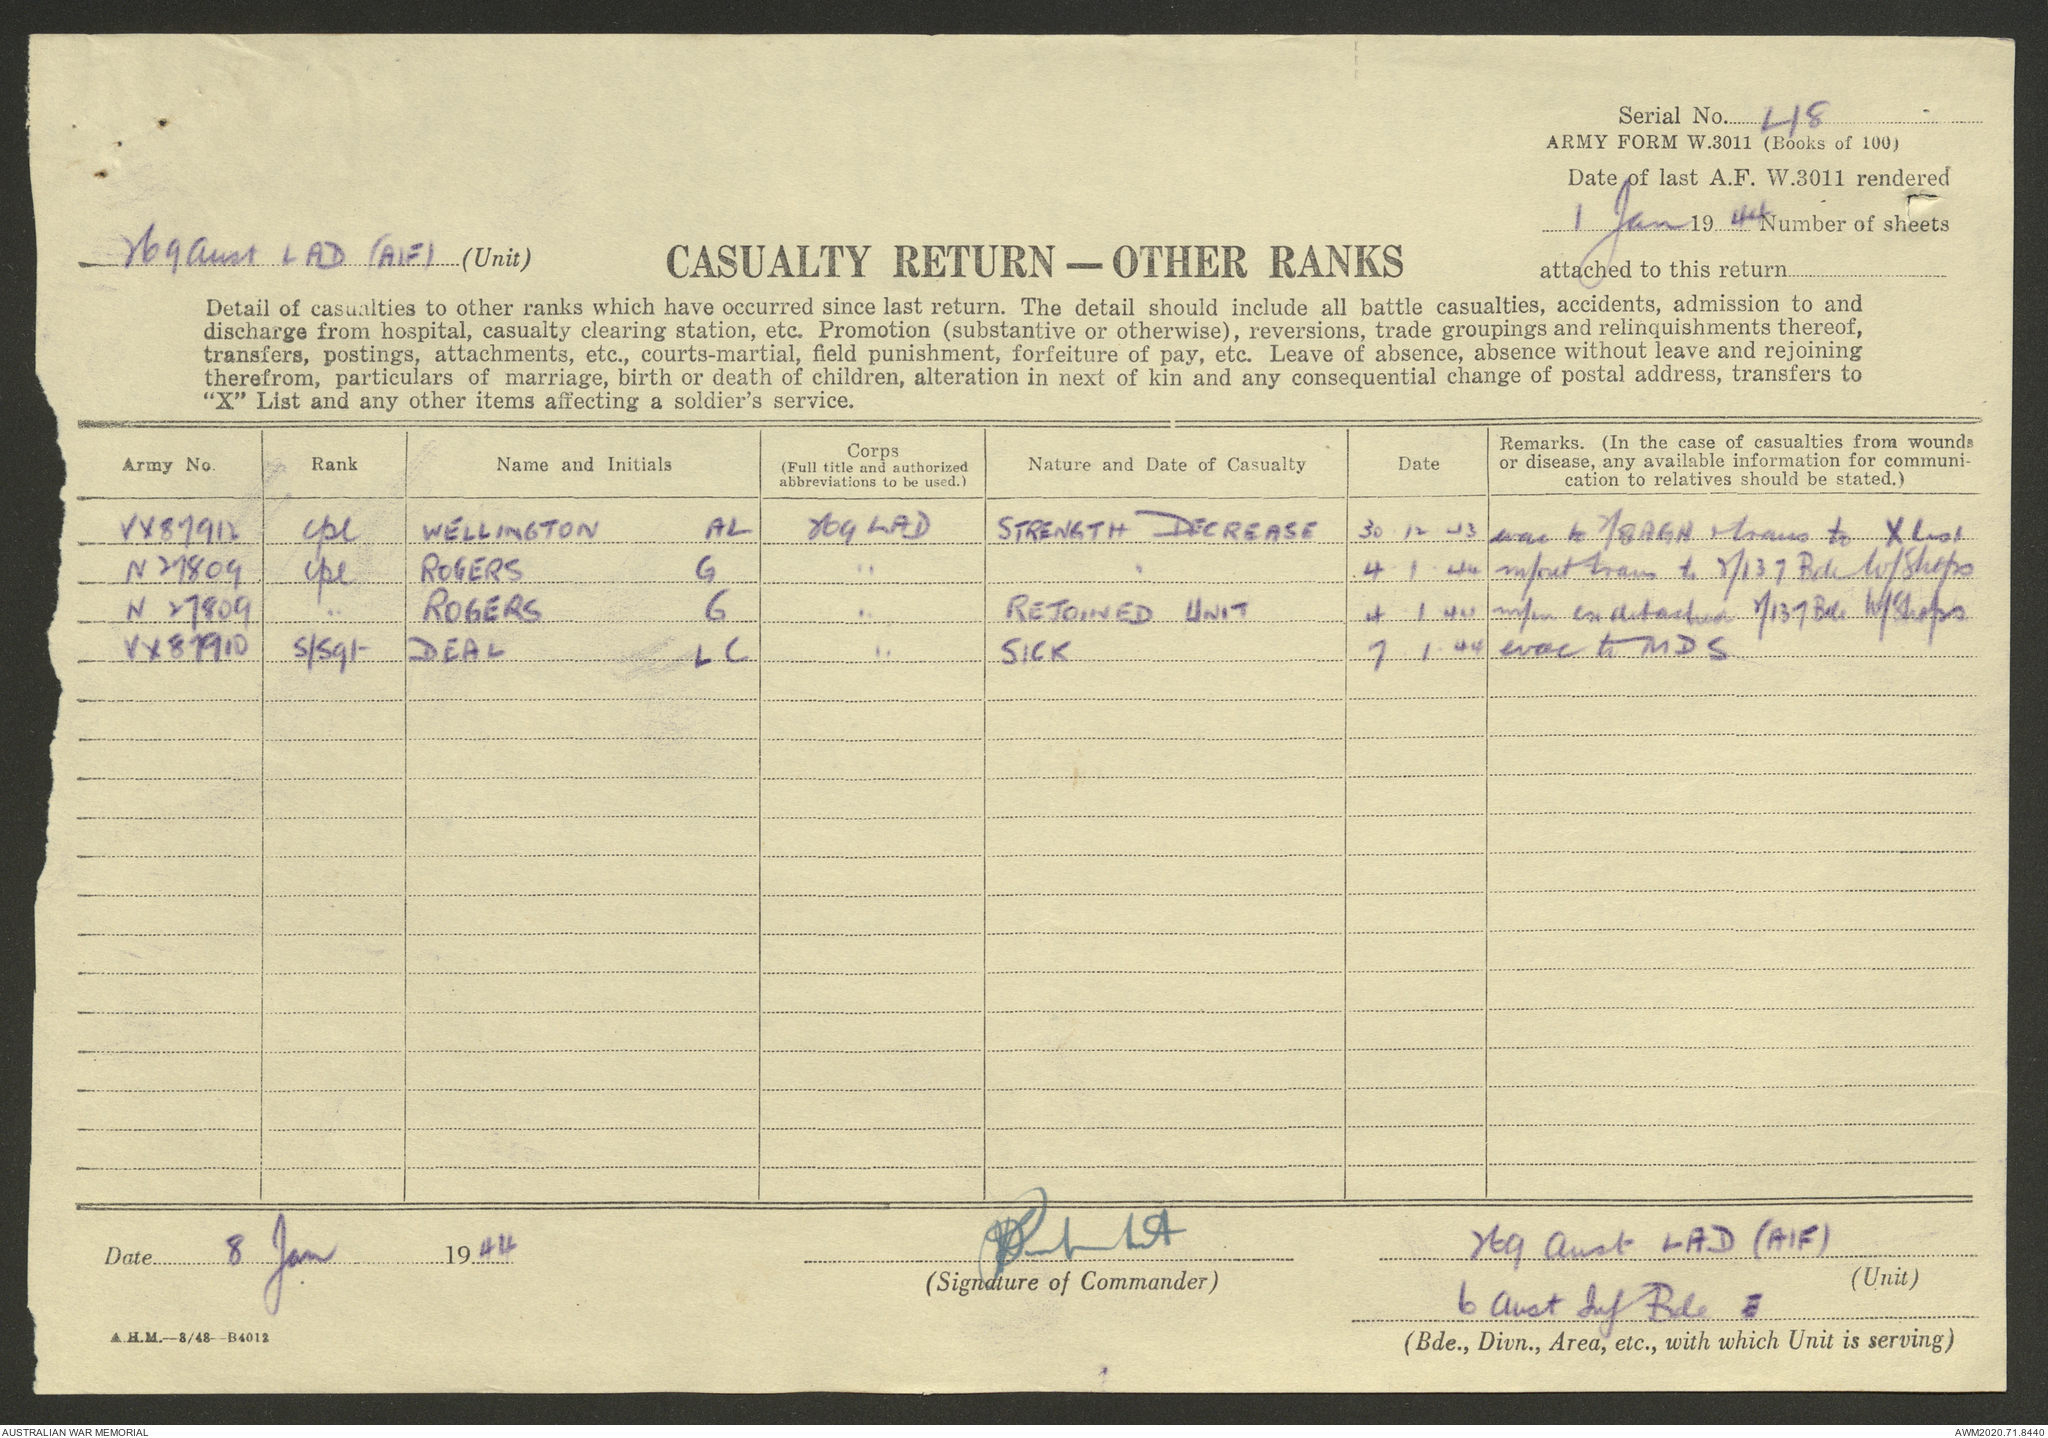 Serial No. L18
ARMY FORM W.3011 (Books of 100)
Date of last A.F. W.3011 rendered
1 Jan 1944 Number of sheets
attached to this return
269 Aust LAD (AIF) (Unit)
CASUALTY RETURN — OTHER RANKS
Detail of casualties to other ranks which have occurred since last return. The detail should include all battle casualties, accidents, admission to and
discharge from hospital, casualty clearing station, etc. Promotion (substantive or otherwise), reversions, trade groupings and relinquishments thereof,
transfers, postings, attachments, etc., courts-martial, field punishment, forfeiture of pay, etc. Leave of absence, absence without leave and rejoining
therefrom, particulars of marriage, birth or death of children, alteration in next of kin and any consequential change of postal address, transfers to
"X" List and any other items affecting a soldier's service.
Army No. Rank Name and Initials Corps (Full title and authorized abbreviations to be used.) Nature and Date of Casualty Date Remarks. (In the case of casualties from wounds or disease, any available information for communi-cation to relatives should be stated.)
VX87912 Cpl WELLINGTON AL 269 LAD STRENGTH DECREASE 30 12 43 evac to 2/8 AGH & trans to X List
N 27809 Cpl ROGERS G " " 4 1 44 m/out trans to 2/137 Bde W/Shops
N 27809 " ROGERS G " REJOINED UNIT 4 1 44 m/in ex detached 2/137 Bde W/Shops
VX87910 S/Sgt DEAL LC " SICK 7 1 44 evac to MDS
Date 8 Jan 1944
(Signature of Commander)
269 Aust LAD (AIF)
(Unit)
6 Aust Inf Bde
(Bde., Divn., Area, etc., with which Unit is serving)
A.H.M.—8/43—B4012
AUSTRALIAN WAR MEMORIAL AWM2020.71.8440